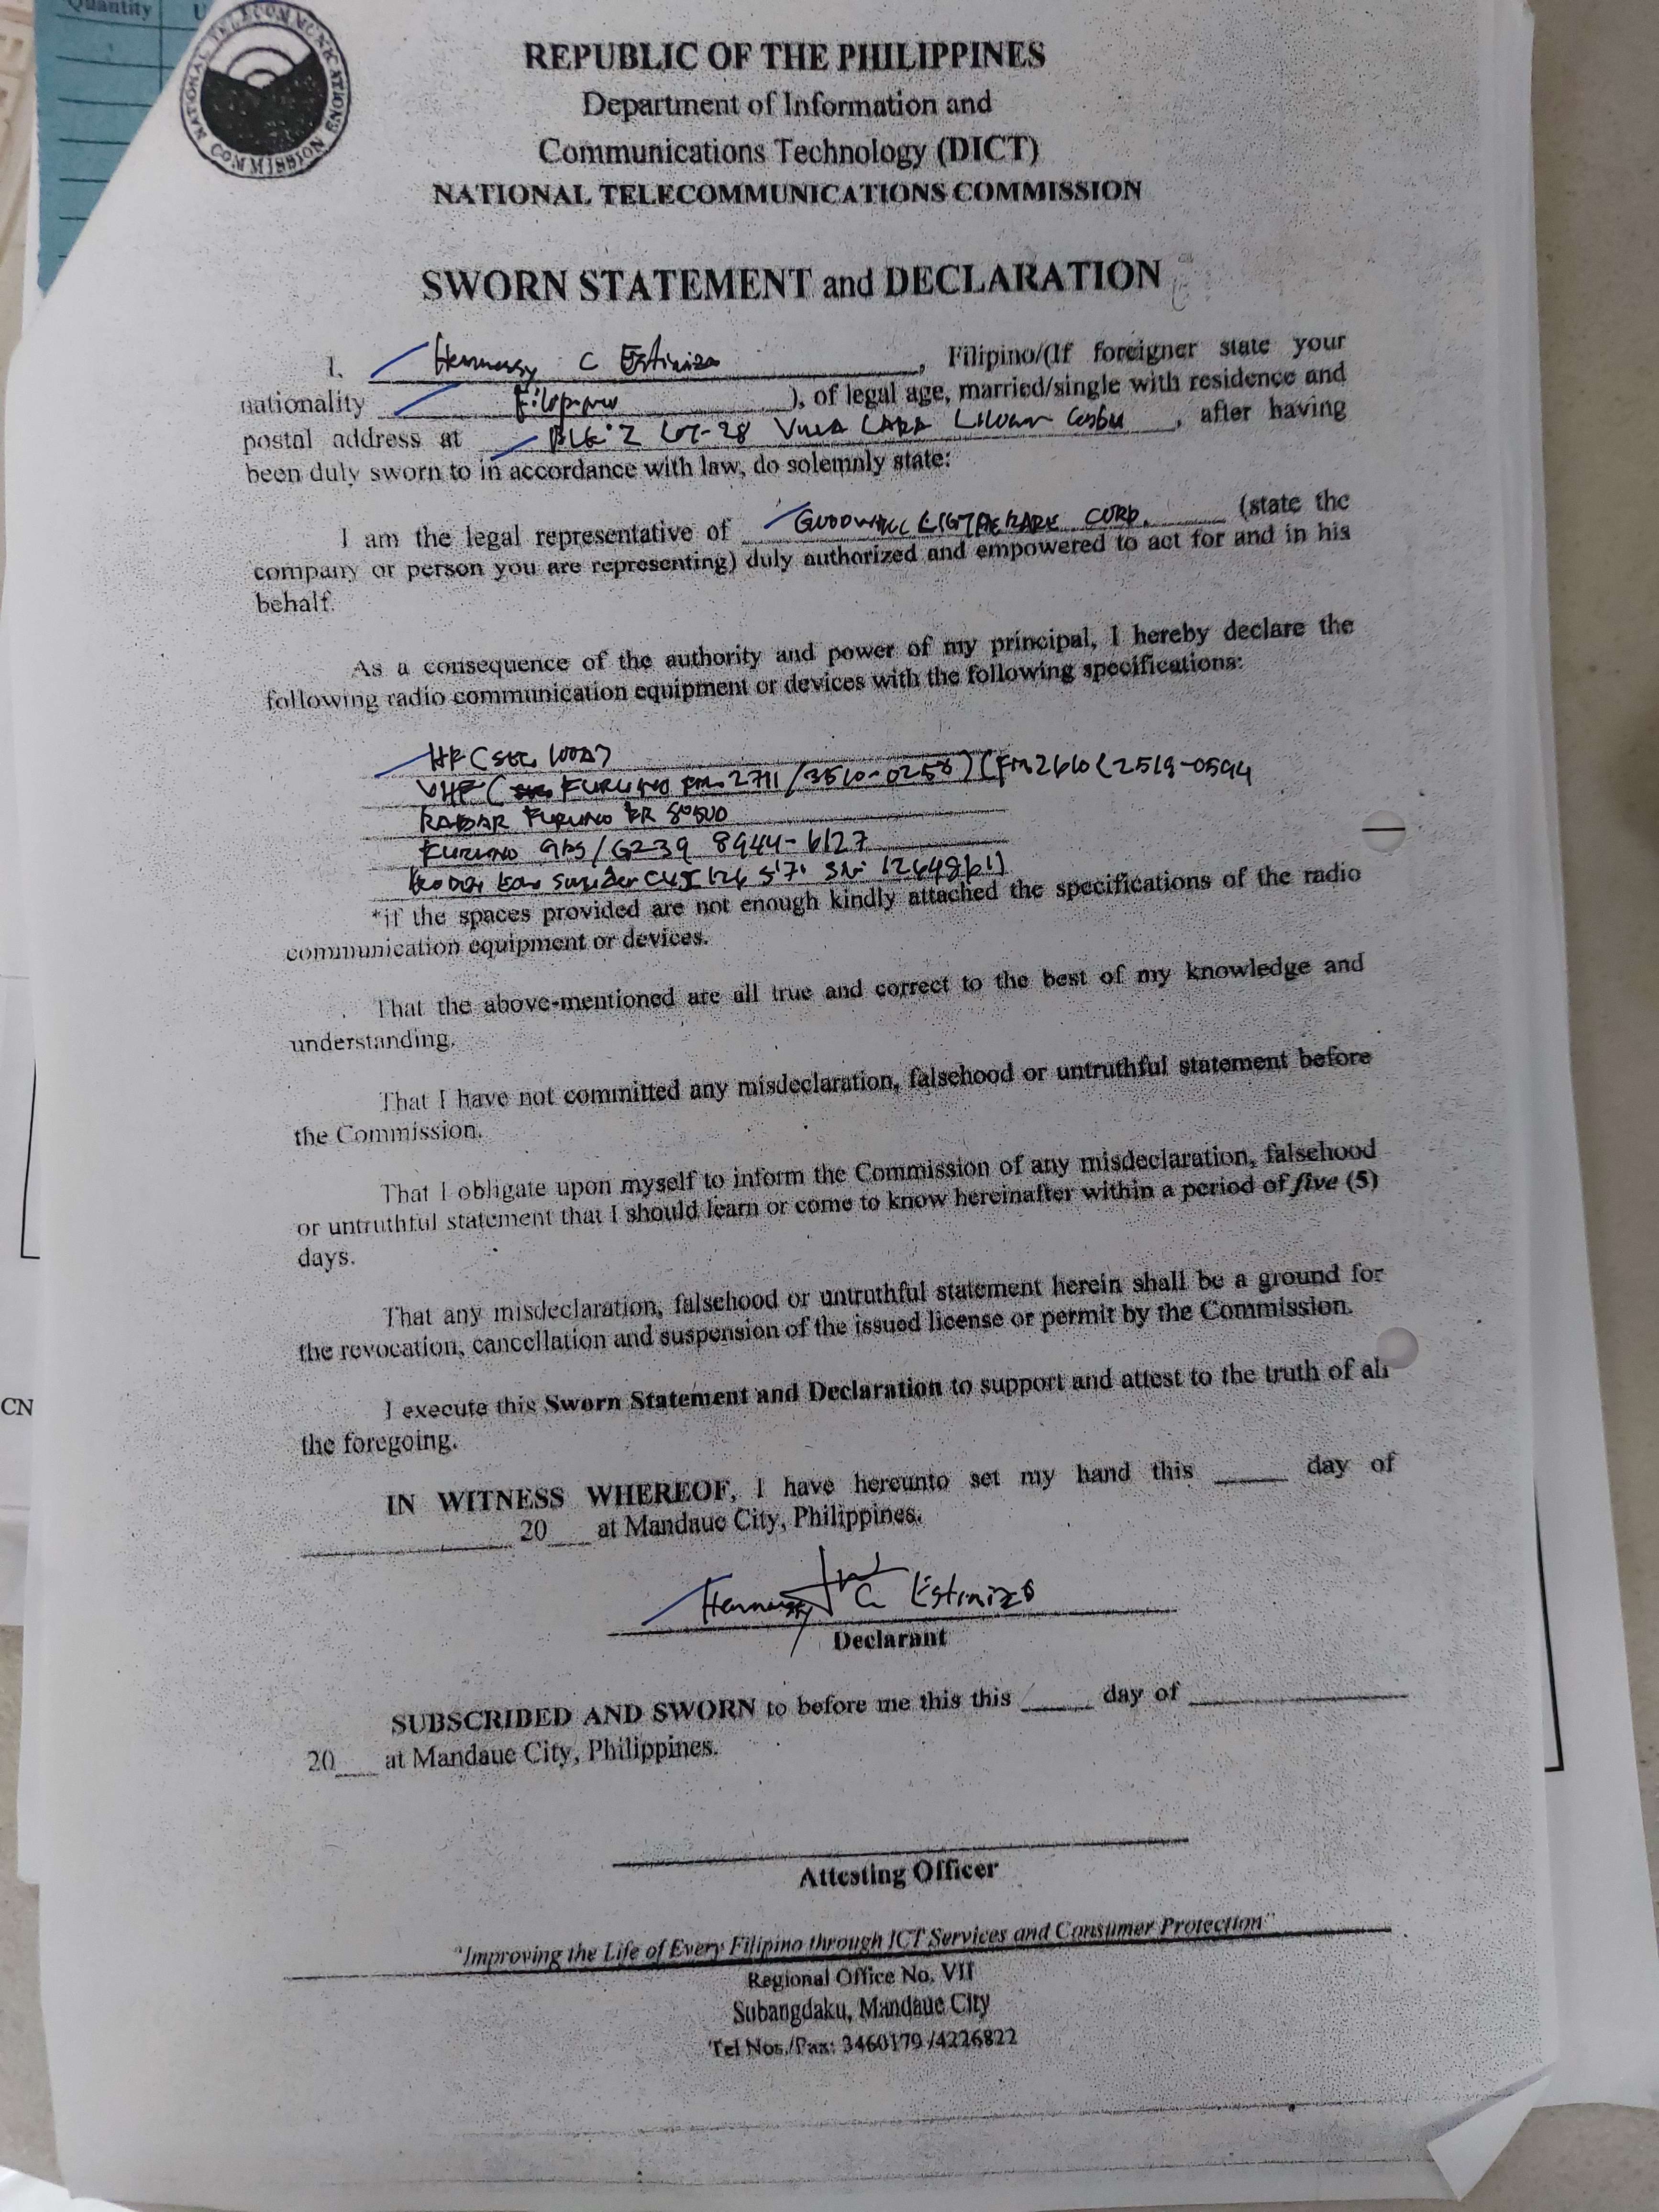 Quantity
NATIONAL TELECOMMUNICATIONS COMMISSION
REPUBLIC OF THE PHILIPPINES
Department of Information and
Communications Technology (DICT)
NATIONAL TELECOMMUNICATIONS COMMISSION
SWORN STATEMENT and DECLARATION
I, Hennessy C Estinizo, Filipino/(If foreigner state your
nationality Filipino ), of legal age, married/single with residence and
postal address at BLK 2 LOT-28 VILLA LARA LILOAN CEBU, after having
been duly sworn to in accordance with law, do solemnly state:
I am the legal representative of GOODWILL LIGTHERAGE CORP. (state the
company or person you are representing) duly authorized and empowered to act for and in his
behalf.
As a consequence of the authority and power of my principal, I hereby declare the
following radio communication equipment or devices with the following specifications:
HF (SEC 100A)
VHF ( FURUNO FM 2711/3510-0258) (FM2610 (2519-0594
RADAR FURUNO FR 8050D
FURUNO GPS/G239 8944-6127
*if the spaces provided are not enough kindly attached the specifications of the radio
communication equipment or devices.
That the above-mentioned are all true and correct to the best of my knowledge and
understanding.
That I have not committed any misdeclaration, falsehood or untruthful statement before
the Commission.
That I obligate upon myself to inform the Commission of any misdeclaration, falsehood
or untruthful statement that I should learn or come to know hereinafter within a period of five (5)
days.
That any misdeclaration, falsehood or untruthful statement herein shall be a ground for
the revocation, cancellation and suspension of the issued license or permit by the Commission.
I execute this Sworn Statement and Declaration to support and attest to the truth of all
the foregoing.
IN WITNESS WHEREOF, I have hereunto set my hand this ____ day of
____ 20___ at Mandaue City, Philippines.
Hennessy C. Estinizo
Declarant
SUBSCRIBED AND SWORN to before me this this ____ day of ____
20___ at Mandaue City, Philippines.
Attesting Officer
"Improving the Life of Every Filipino through ICT Services and Consumer Protection"
Regional Office No. VII
Subangdaku, Mandaue City
Tel Nos./Fax: 3460179 /4226822
CN